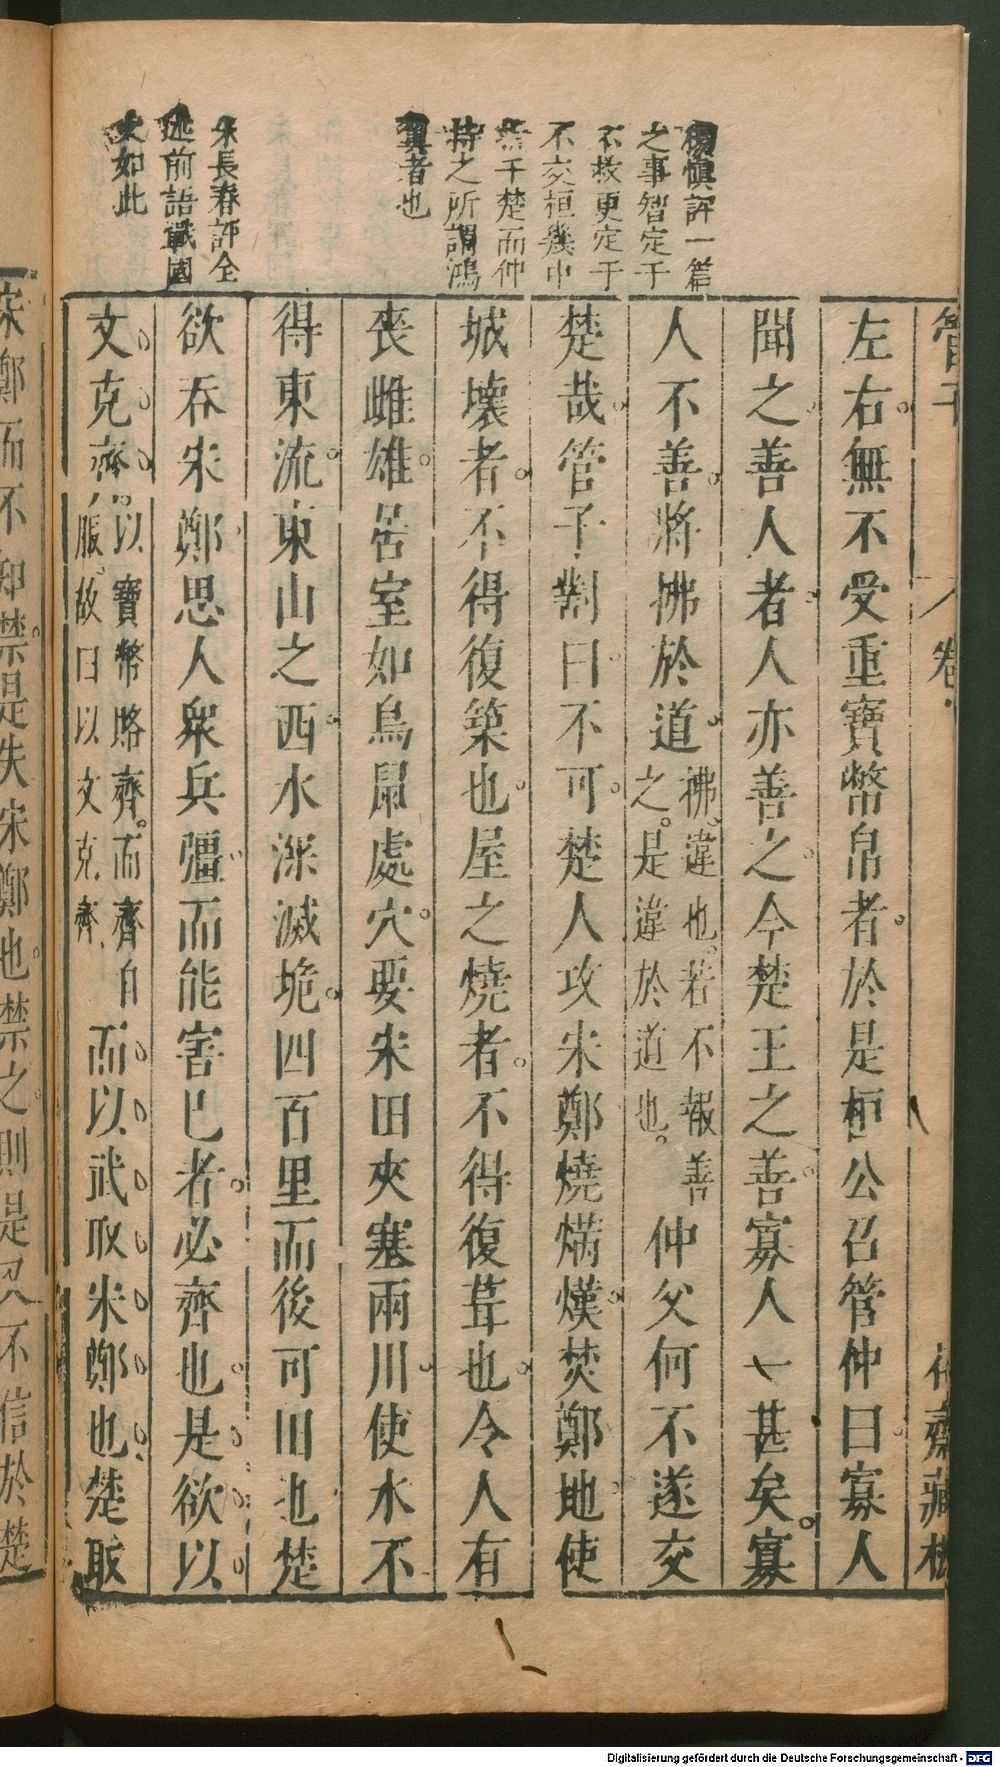 管子
卷
齋藏板
楊慎評一篇
之事智定于
不救更定于
不交桓幾中
于楚而仲
持之所謂鴻
冀者也
朱長春評全
述前語戰國
文如此
左右無不受重寶幣帛者於是桓公召管仲曰寡人
聞之善人者人亦善之今楚王之善寡人一甚矣寡
人不善將拂於道
拂違也若不報善
之是違於道也
仲父何不遂交
楚哉管子對曰不可楚人攻宋鄭燒焫熯焚鄭地使
城壞者不得復築也屋之燒者不得復葺也令人有
喪雌雄居室如鳥鼠處穴要宋田夾塞兩川使水不
得東流東山之西水深滅垝四百里而後可田也楚
欲吞宋鄭思人衆兵彊而能害己者必齊也是欲以
文克齊
以寶幣賂齊而齊自
服故曰以文克齊
而以武取宋鄭也楚取
宋鄭而不知禁是失宋鄭也禁之則是又不信於楚
Digitalisierung gefördert durch die Deutsche Forschungsgemeinschaft - DFG